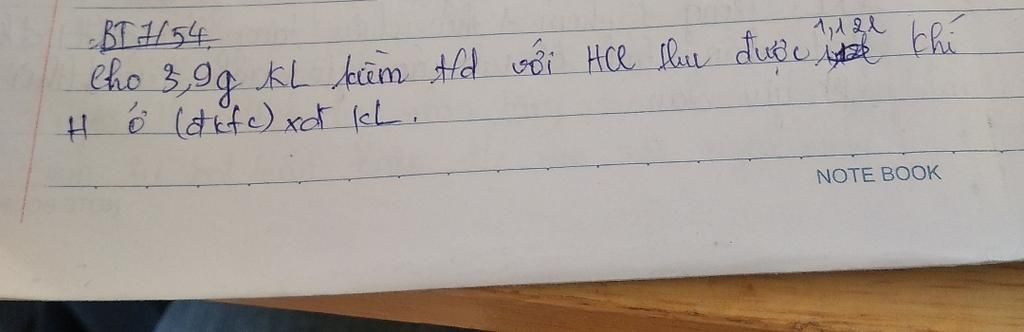 BT 7/54.
Cho 3,9g KL kiềm t/d với HCl thu được 1,12l khí
H ở (đktc) xđ KL.
NOTE BOOK